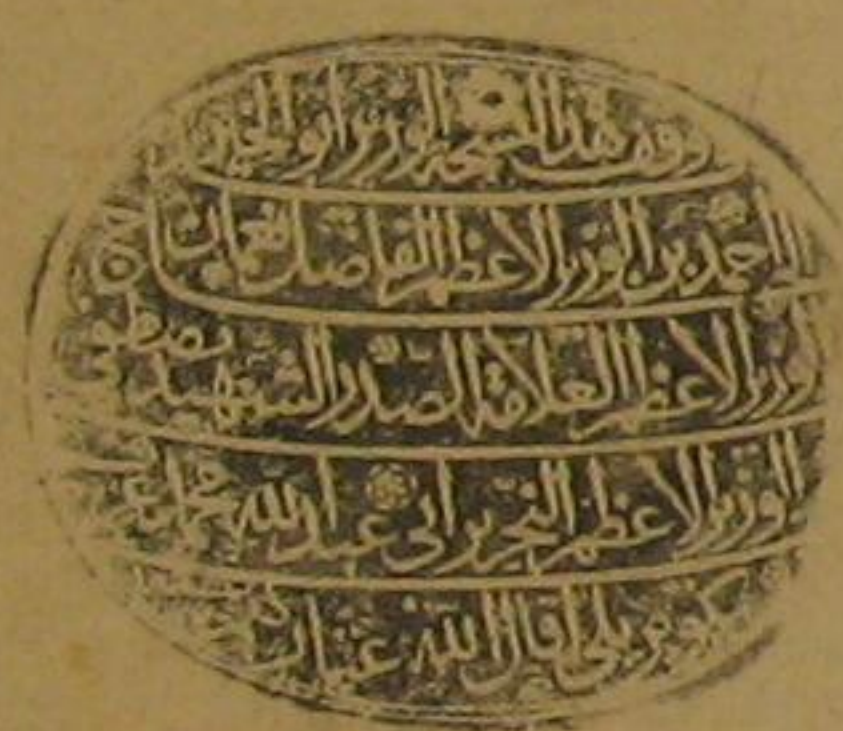 وقف هذا النسخة الوزير ابو الخير
الحاج احمد بن الوزير الاعظم الفاضل نعمان بن
الوزير الاعظم العلامة الصدر الشهيد مصطفى
الوزير الاعظم النحرير ابي عبد الله محمد
كوپريلى اقال الله عثار